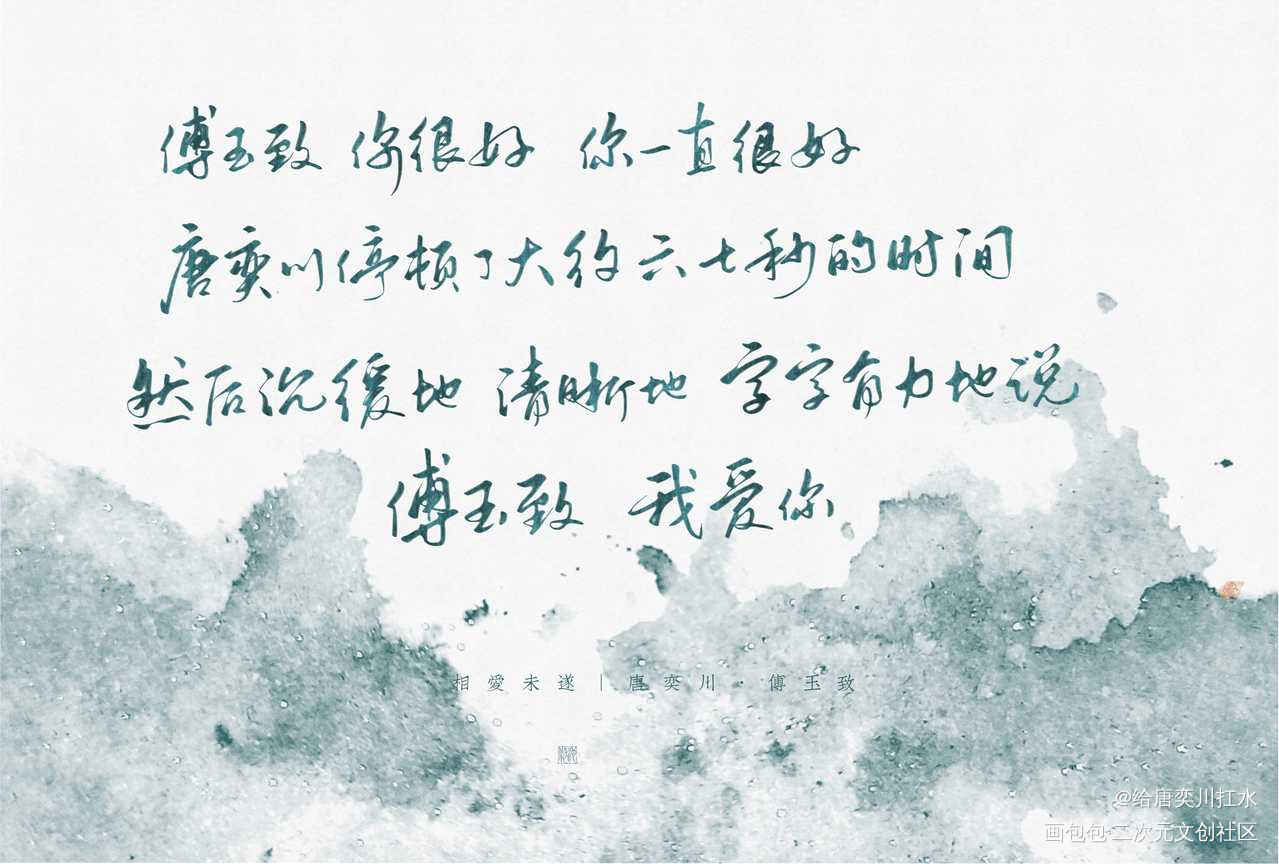 傅玉致 你很好 你一直很好
唐奕川停顿了大约六七秒的时间
然后沉缓地 清晰地 字字有力地说
傅玉致 我爱你
相愛未遂|唐奕川·傅玉致
@给唐奕川扛水
画包包·二次元文创社区